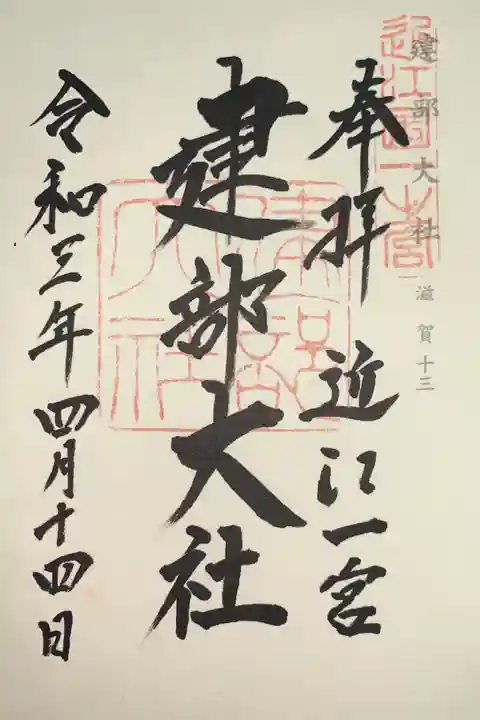 建部大社
滋賀十三
近江國一之宮
奉拝 近江一宮
建部大社
建部大社
令和三年四月十四日